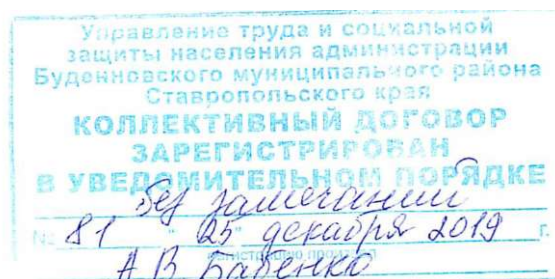 Управление труда и социальной
защиты населения администрации
Буденновского муниципального района
Ставропольского края
КОЛЛЕКТИВНЫЙ ДОГОВОР
ЗАРЕГИСТРИРОВАН
В УВЕДОМИТЕЛЬНОМ ПОРЯДКЕ
без замечаний
№ 81 "25" декабря 2019 г.
А В Бабенко